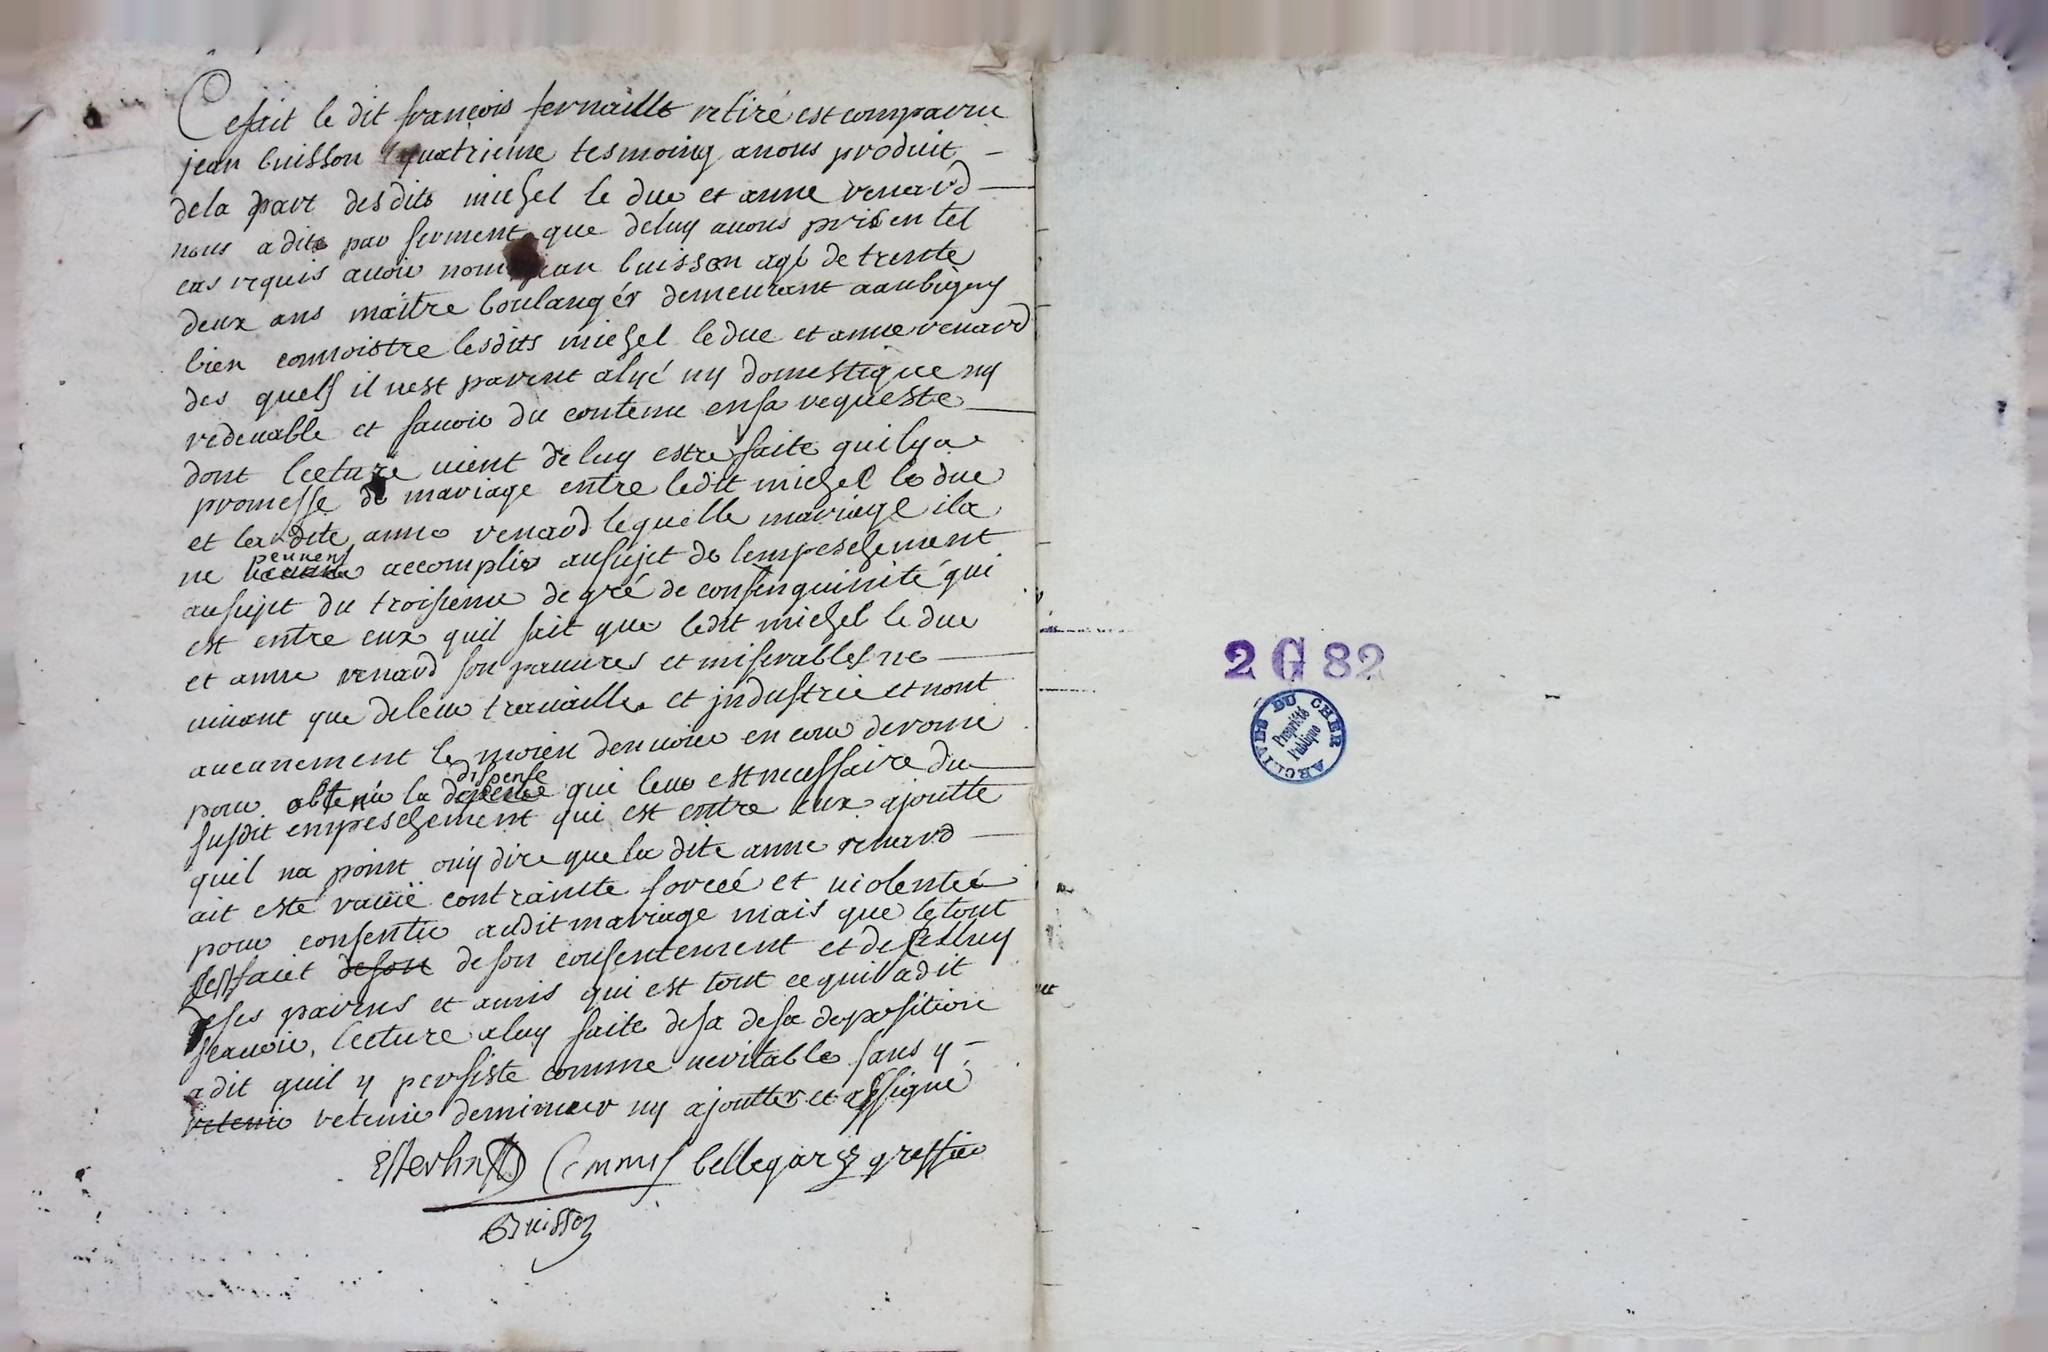 Ce fait le dit françois fernaille retiré est comparu
jean buisson quatrieme tesmoing a nous produit
de la part des dits michel le duc et anne renard
nous a dit par serment que de luy avons pris en tel
cas requis avoir nom jean buisson agé de trente
deux ans maître boulangér demeurant a aubigny
bien connoistre lesdits michel le duc et anne renard
des quels il nest parent alyé ny domestique ny
redevable et savoir du contenu en sa requeste
dont lecture vient de luy estre faite quil y a
promesse de mariage entre le dit michel le duc
et la dite anne renard lequelle mariage ila
ne peuvent accomplir au sujet de lempeschement
au sujet du troisieme degré de consenguinité qui
est entre eux quil sait que le dit michel le duc
et anne renard son pauvres et miserables ne
vivant que de leur travaille et jndustrie et nont
aucunement le moien denvoier en cour de rome
pour obtenir la dispense qui leur est necessaire du
susdit empeschement qui est entre eux ajoutte
quil na point ouy dire que la dite anne renard
ait esté ravie contrainte forcée et violentée
pour consentir au dit mariage mais que le tout
sest fait de son de son consentement et de celluy
de ses parens et amis qui est tout ce quil a dit
scavoir, lecture a luy faite de sa de sa deposition
a dit quil y persiste comme veritable sans y
retenir retenir deminuer ny ajoutter et a signé
bellegarde greffier
Buisson
2 G 82
ARCHIVES DU CHER
Propriété
Publique